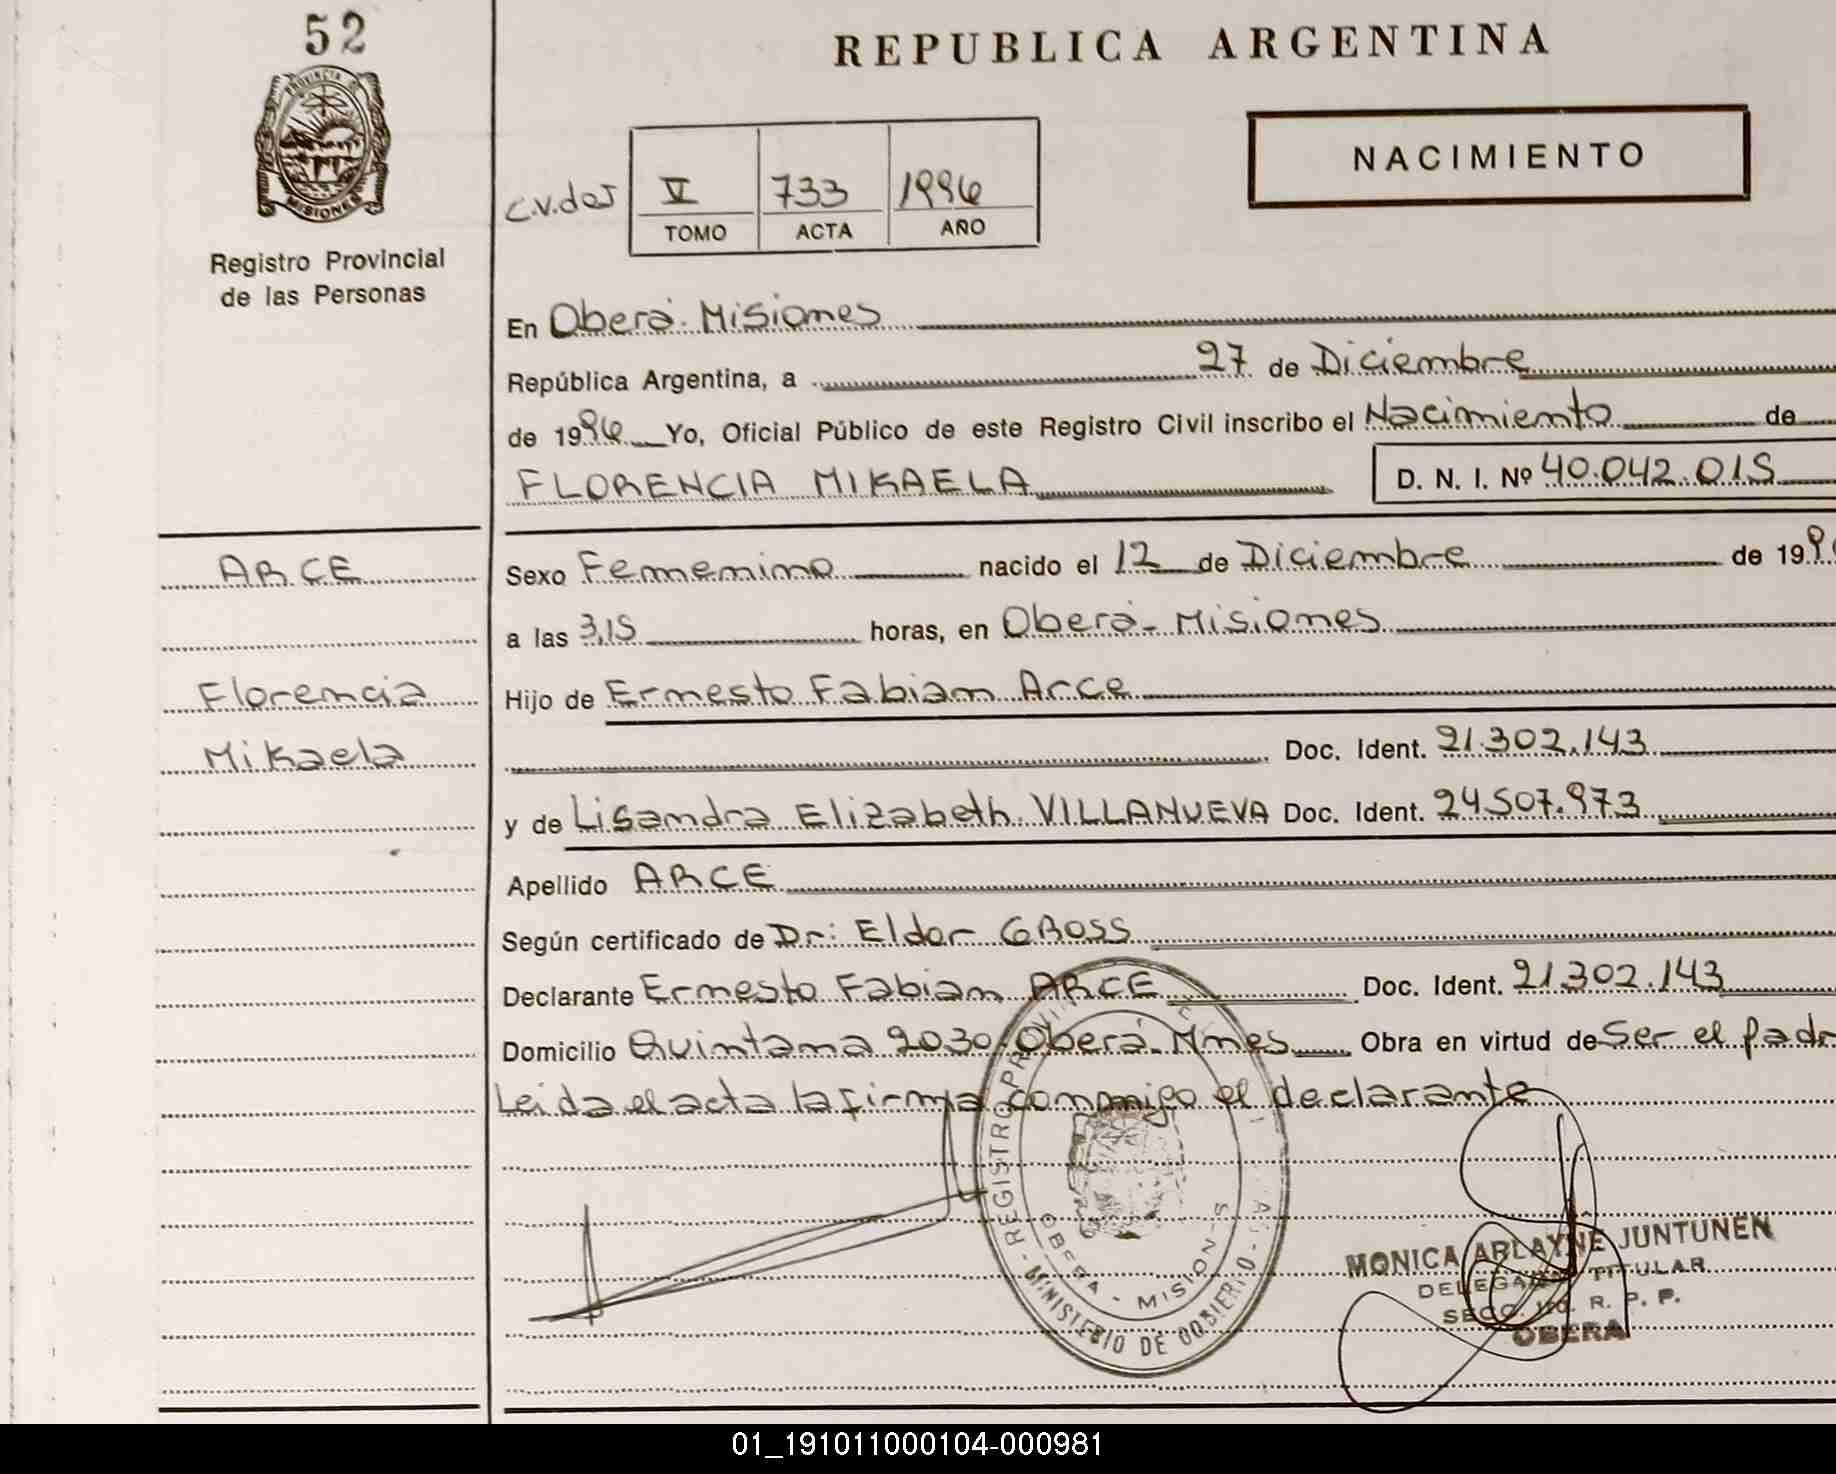 52
PROVINCIA DE
MISIONES
Registro Provincial
de las Personas
REPUBLICA ARGENTINA
NACIMIENTO
c.v.dos
V 733 1996
TOMO ACTA AÑO
En Oberá- Misiones
República Argentina, a 27 de Diciembre
de 1996 Yo, Oficial Público de este Registro Civil inscribo el Nacimiento de
FLORENCIA MIKAELA D. N. I. Nº 40.042.015
ARCE
Florencia
Mikaela
Sexo Femenino nacido el 12 de Diciembre de 199
a las 3,15 horas, en Oberá- Misiones
Hijo de Ernesto Fabian Arce
Doc. Ident. 21.302.143
y de Lisandra Elizabeth VILLANUEVA Doc. Ident. 24.507.973
Apellido ARCE
Según certificado de Dr: Eldor GROSS
Declarante Ernesto Fabian ARCE Doc. Ident. 21.302.143
Domicilio Quintana 2030-Oberá-Mnes Obra en virtud de Ser el padr
Leida el acta la firma conmigo el declarante
REGISTRO
MINISTERIO DE GOBIERNO
OBERA - MISIONES
MONICA ARLAYNE JUNTUNEN
DELEGADA TITULAR
R. P. P.
OBERA
01_191011000104-000981